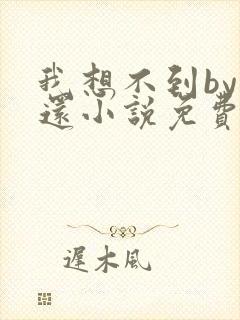 我想不到by
還小說免費
遲木風